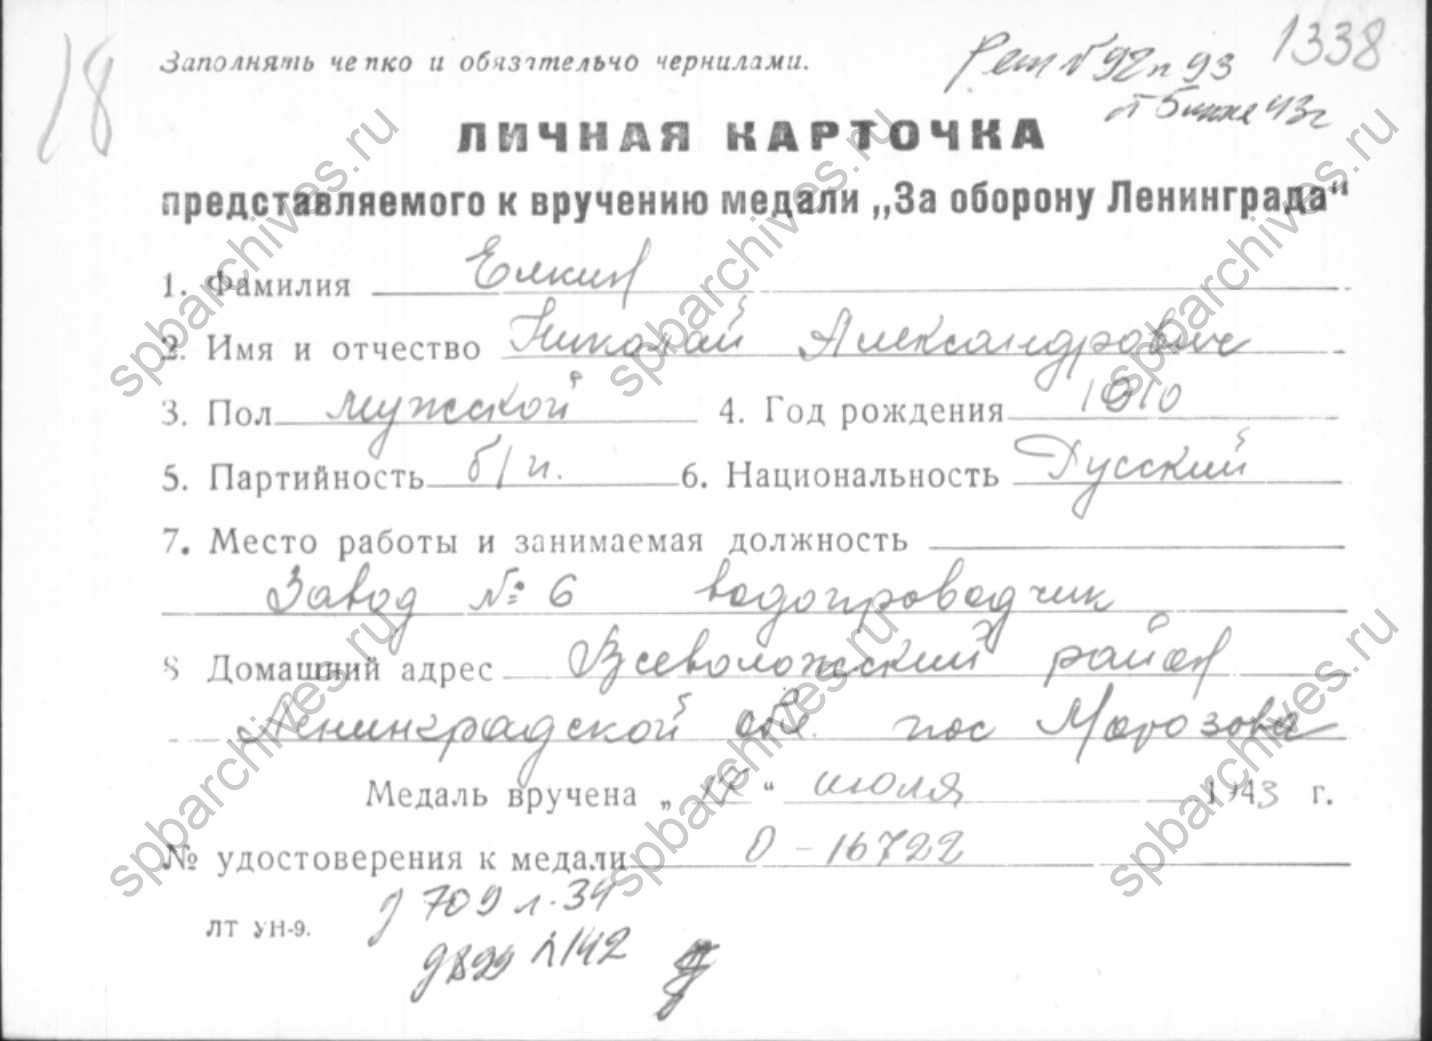 18
Заполнять четко и обязательно чернилами.
Реш № 92 п 93
1338
от 5 июня 43 г
ЛИЧНАЯ КАРТОЧКА
представляемого к вручению медали „За оборону Ленинграда“
1. Фамилия Елкин
2. Имя и отчество Николай Александрович
3. Пол мужской 4. Год рождения 1910
5. Партийность б/п. 6. Национальность Русский
7. Место работы и занимаемая должность
Завод № 6 водопроводчик
8 Домашний адрес Всеволожский район
Ленинградской обл. пос Морозова
Медаль вручена „17“ июля 1943 г.
№ удостоверения к медали О-16722
ЛТ УН-9.
д 709 л. 34
д 899 л 142
spbarchives.ru
spbarchives.ru
spbarchives.ru
spbarchives.ru
spbarchives.ru
spbarchives.ru